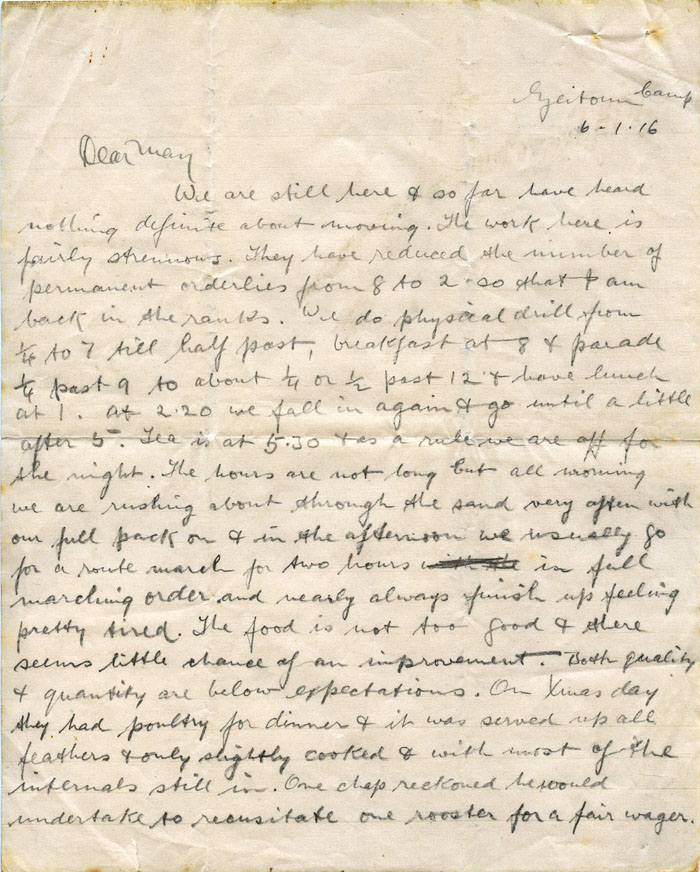 Zeitoun Camp
6-1-16
Dear May
We are still here & so far have heard
nothing definite about moving. The work here is
fairly strenuous. They have reduced the number of
permanent orderlies from 8 to 2 so that I am
back in the ranks. We do physical drill from
¼ to 7 till half past, breakfast at 8 & parade
¼ past 9 to about ¼ or ½ past 12 & have lunch
at 1. At 2.20 we fall in again & go until a little
after 5. Tea is at 5.30 & as a rule we are off for
the night. The hours are not long but all morning
we are rushing about through the sand very often with
our full pack on & in the afternoon we usually go
for a route march for two hours in full
marching order and nearly always finish up feeling
pretty tired. The food is not too good & there
seems little chance of an improvement. Both quality
& quantity are below expectations. On Xmas day
they had poultry for dinner & it was served up all
feathers & only slightly cooked & with most of the
internals still in. One chap reckoned he would
undertake to recusitate one rooster for a fair wager.